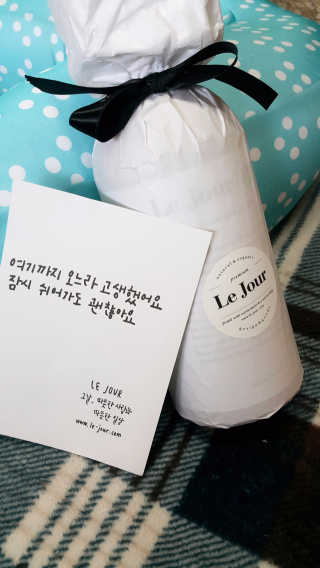 여기까지 오느라 고생했어요
잠시 쉬어가도 괜찮아요
LE JOUR
그날, 따뜻한 사람과
따뜻한 일상
www.le-jour.com
natural & organic
Premium
Le Jour
design & made